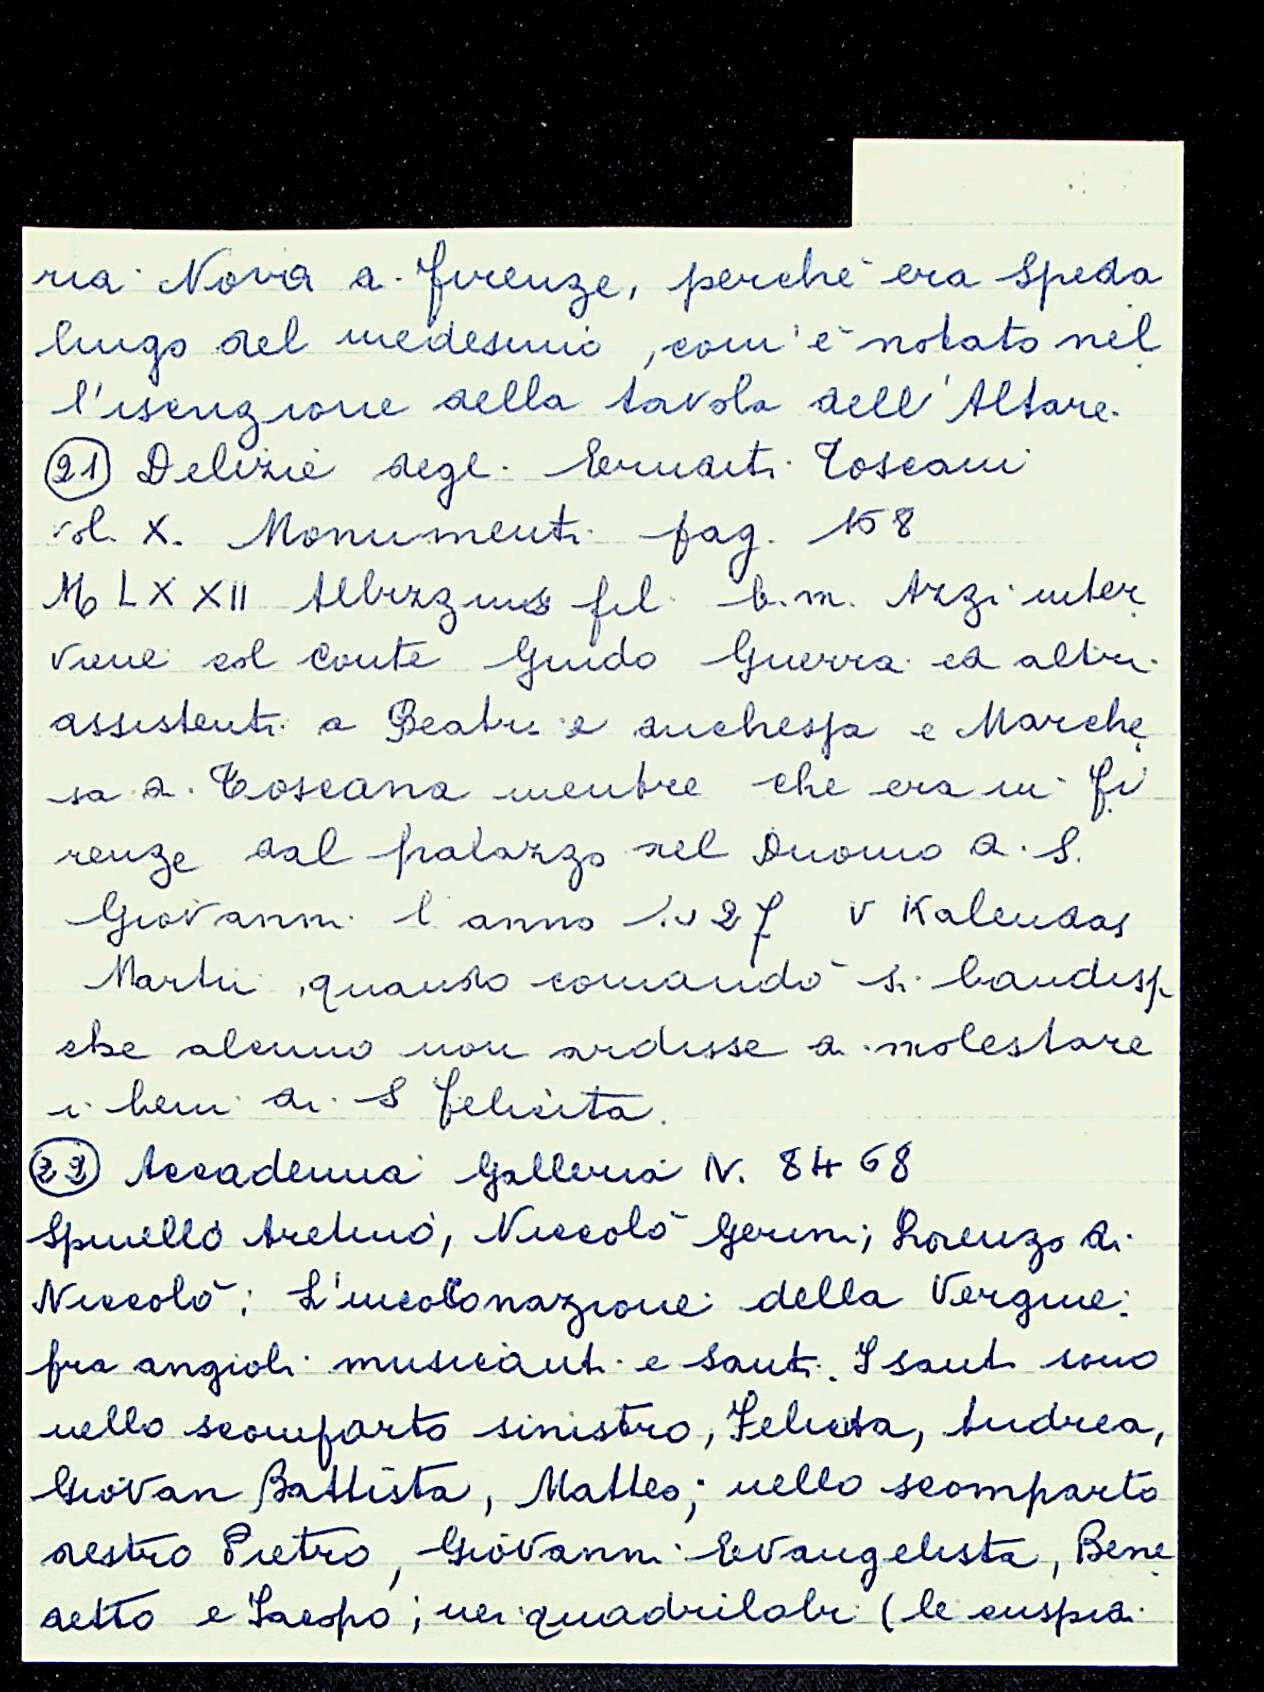 ria Nova a Firenze, perchè era Speda
lingo del medesimo, com'è notato nel
l'iscrizione della tavola dell'Altare.
(21) Delizie degl. Eruditi Toscani
vol. X. Monumenti pag. 158
MLXXII Albizzus fil. b.m. Azzi inter
viene col Conte Guido Guerra ed altri
assistenti a Beatri e duchessa e Marche
sa di Toscana mentre che era in Fi
renze dal palazzo nel Duomo di S.
Giovanni l'anno V Kalendas
Martii, quando comandò si bandisse
che alcuno non ardisse di molestare
i beni di S Felicita.
Accademia Galleria N. 8468
Spinello Aretino, Niccolò Gerini; Lorenzo di
Niccolò; L'incoronazione della Vergine
fra angioli musicanti e Santi. I santi sono
nello scomparto sinistro, Felicita, Andrea,
Giovan Battista, Matteo; nello scomparto
destro Pietro, Giovanni Evangelista, Bene
detto e Iacopo; nei quadrilobi (le cuspidi